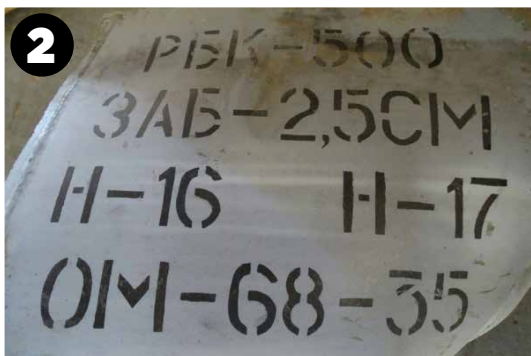 2
РБК-500
ЗАБ-2,5СМ
Н-16 Н-17
ОМ-68-35